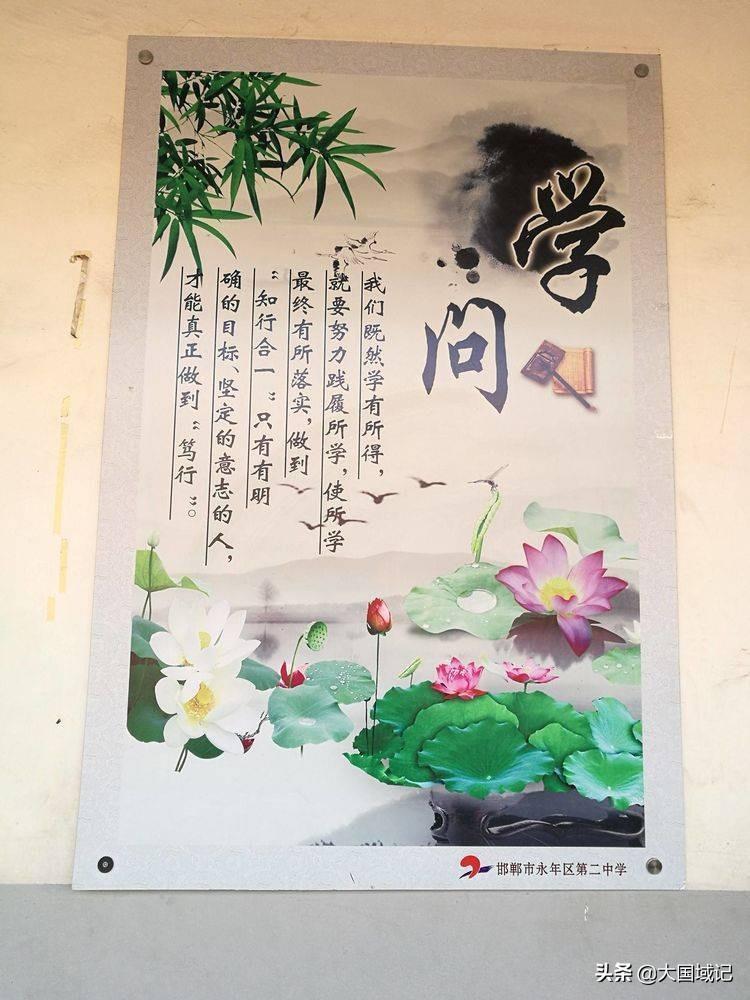 学
问
我们既然学有所得，
就要努力践履所学，使所学
最终有所落实，做到
“知行合一”。只有有明
确的目标、坚定的意志的人，
才能真正做到“笃行”。
邯郸市永年区第二中学
头条 @大国域记